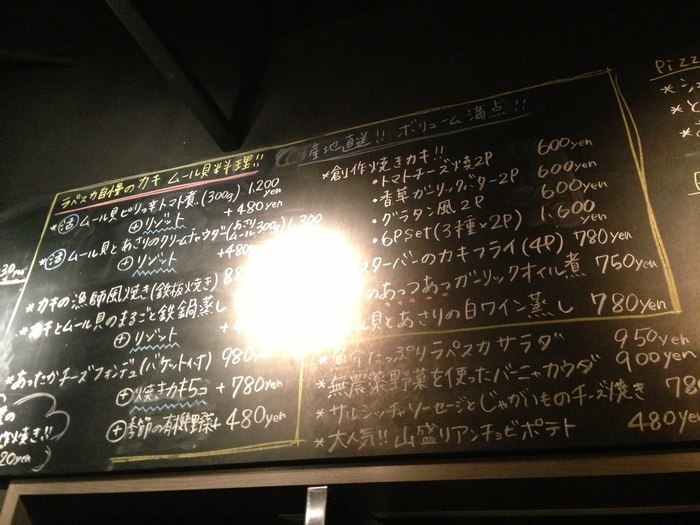 ラペスカ自慢のカキ ムール貝料理!!
産地直送!! ボリューム満点!!
*活 ムール貝ピリッ辛トマト煮(300g) 1.200yen
+リゾット +480yen
*活 ムール貝とあさりのクリームチャウダー 1.300
+リゾット +480
*カキの漁師風焼き(鉄板焼き)
とムール貝のまるごと鉄鍋蒸し
+リゾット
*あったかチーズフォンデュ(バケット付) 980yen
+焼きカキ5コ +780yen
+季節の有機野菜 +480yen
*創作焼きカキ!!
・トマトチーズ焼2P 600yen
・香草ガーリックバター2P 600yen
・グラタン風2P 600yen
・6Pset(3種×2P) 1.600yen
ターバーのカキフライ(4P) 780yen
のあっつあつガーリックオイル煮 750yen
貝とあさりの白ワイン蒸し 780yen
たっぷりラペスカサラダ 950yen
*無農薬野菜を使ったバーニャカウダ 900yen
*サルシッチャソーセージとじゃがいものチーズ焼き 78
*大人気!! 山盛りアンチョビポテト 480yen
Pizz
焼き!!
20yen